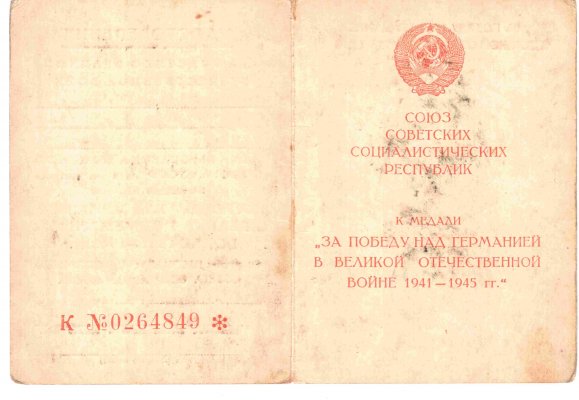 К №0264849 *
СОЮЗ
СОВЕТСКИХ
СОЦИАЛИСТИЧЕСКИХ
РЕСПУБЛИК
К МЕДАЛИ
„ЗА ПОБЕДУ НАД ГЕРМАНИЕЙ
В ВЕЛИКОЙ ОТЕЧЕСТВЕННОЙ
ВОЙНЕ 1941—1945 гг.“